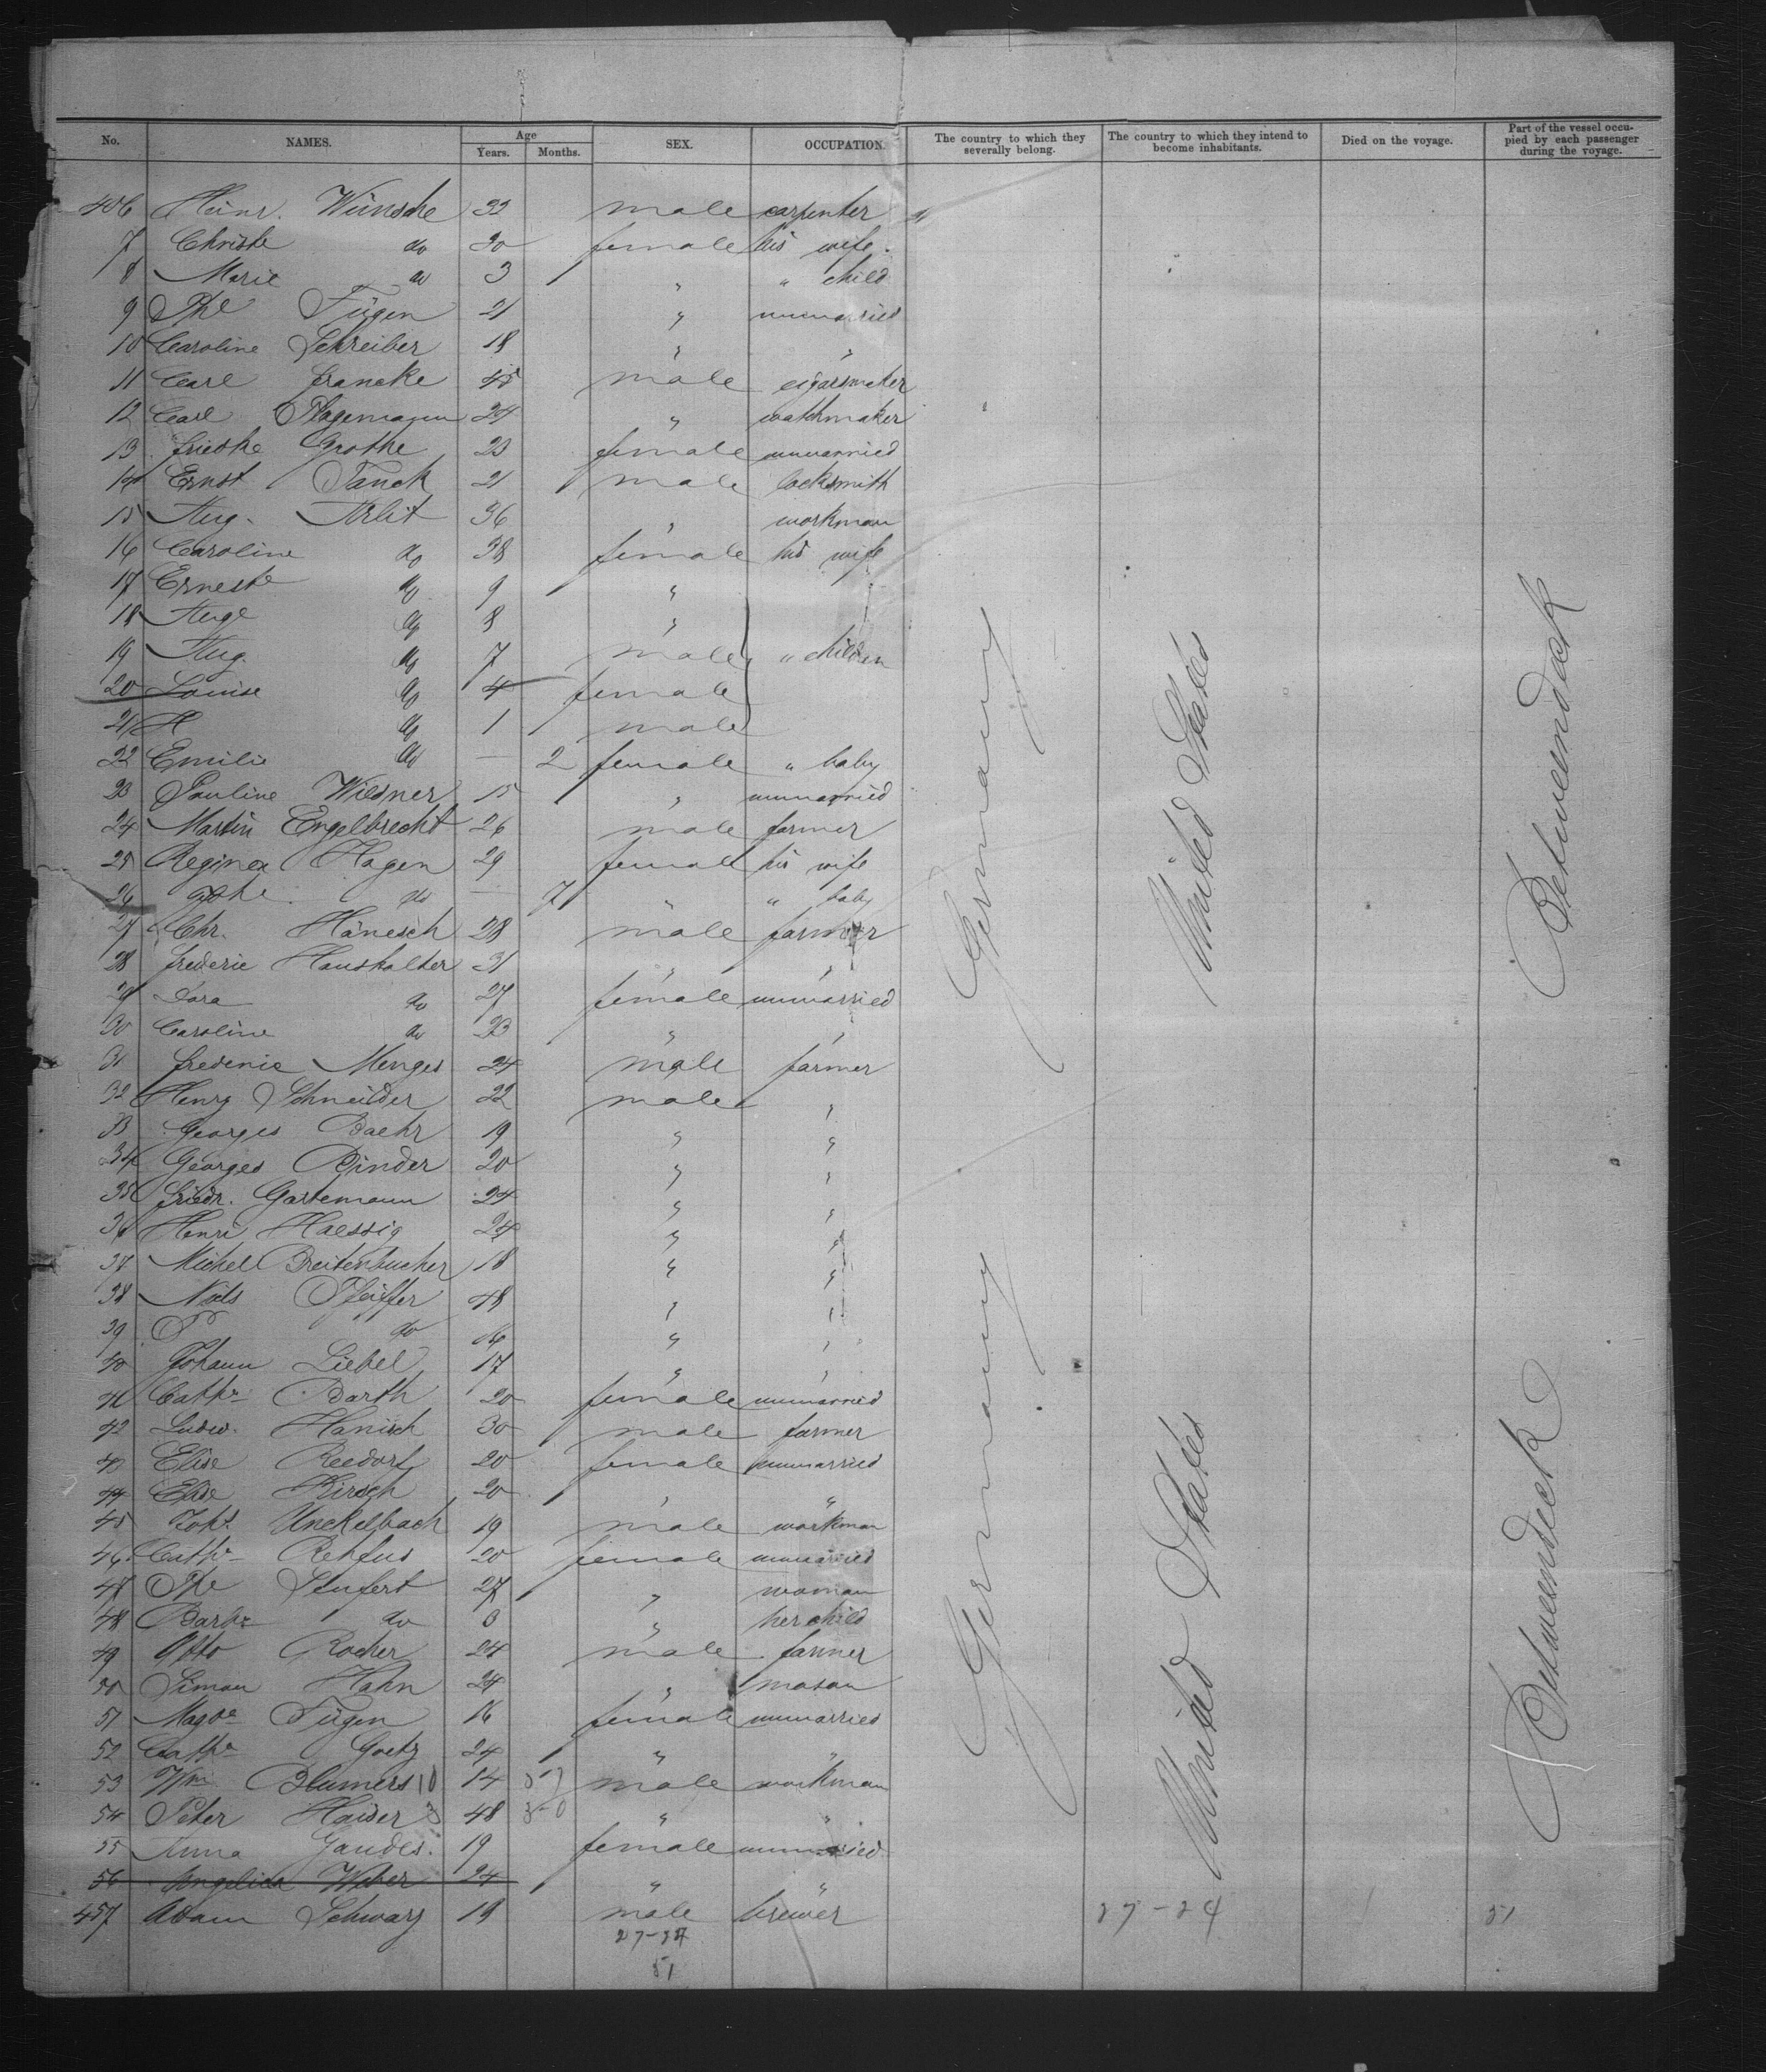 No. NAMES. Age Years. Months. SEX. OCCUPATION. The country to which they severally belong. The country to which they intend to become inhabitants. Died on the voyage. Part of the vessel occupied by each passenger during the voyage.
406 Heinr. Wünsche 33 male carpenter
7 Christe do 30 female his wife
8 Marie do 3 " " child
9 Phe Fügen 21 " unmarried
10 Caroline Schreiber 18 " "
11 Carl Francke 45 male cigarsmaker
12 Carl Plagemann 24 " watchmaker
13 Friedke Grothe 23 female unmarried
14 Ernst Tanck 21 male locksmith
15 Aug. Arlit 36 " workman
16 Caroline do 38 female his wife
17 Erneste do 9 "
18 Auge do 8 "
19 Aug. do 7 male " children
20 Louise do 4 female
21 H do 1 male
22 Emilie do — 2 female " baby
23 Pauline Wiesner 15 " unmarried
24 Martin Engelbrecht 26 male farmer
25 Regina Hagen 29 female his wife
26 do — 7 " " baby
27 Chr. Hänesch 28 male farmer
28 Frederic Haushalter 31 " "
29 Dora do 27 female unmarried
30 Caroline do 23 " "
31 Frederic Menges 24 male farmer
32 Henry Schneider 22 male "
33 Georges Baehr 19 " "
34 Georges Binder 20 " "
35 Friedr. Gartemann 24 " "
36 Henri Haessig 24 " "
37 Michel Breitenbucher 18 " "
38 Nils Pfeiffer 48 " "
39 P do 16 " "
40 Johann Liebel 17 " "
41 Cathe Barth 20 female unmarried
42 Ludw. Hanisch 30 male farmer
43 Elise Reedorf 20 female unmarried
44 Elise Kirsch 20 " "
45 Joh. Unckelbach 19 male workman
46 Cathe Rehfus 20 female unmarried
47 Phe Seufert 27 " woman
48 Barba do 3 " her child
49 Otto Rocher 24 male farmer
50 Simon Hahn 24 " mason
51 Magde Fügen 16 female unmarried
52 Cathe Goetz 24 " "
53 Wm Blumers 10 14 male workman
54 Peter Haider 3 48 " "
55 Anna Gandes. 19 female unmarried
56 Angelica Weber 24 " "
457 Adam Schwarz 19 male brewer 27-24 51
27-24
51
Germany
United States
Betweendeck
Germany
United States
Betweendeck